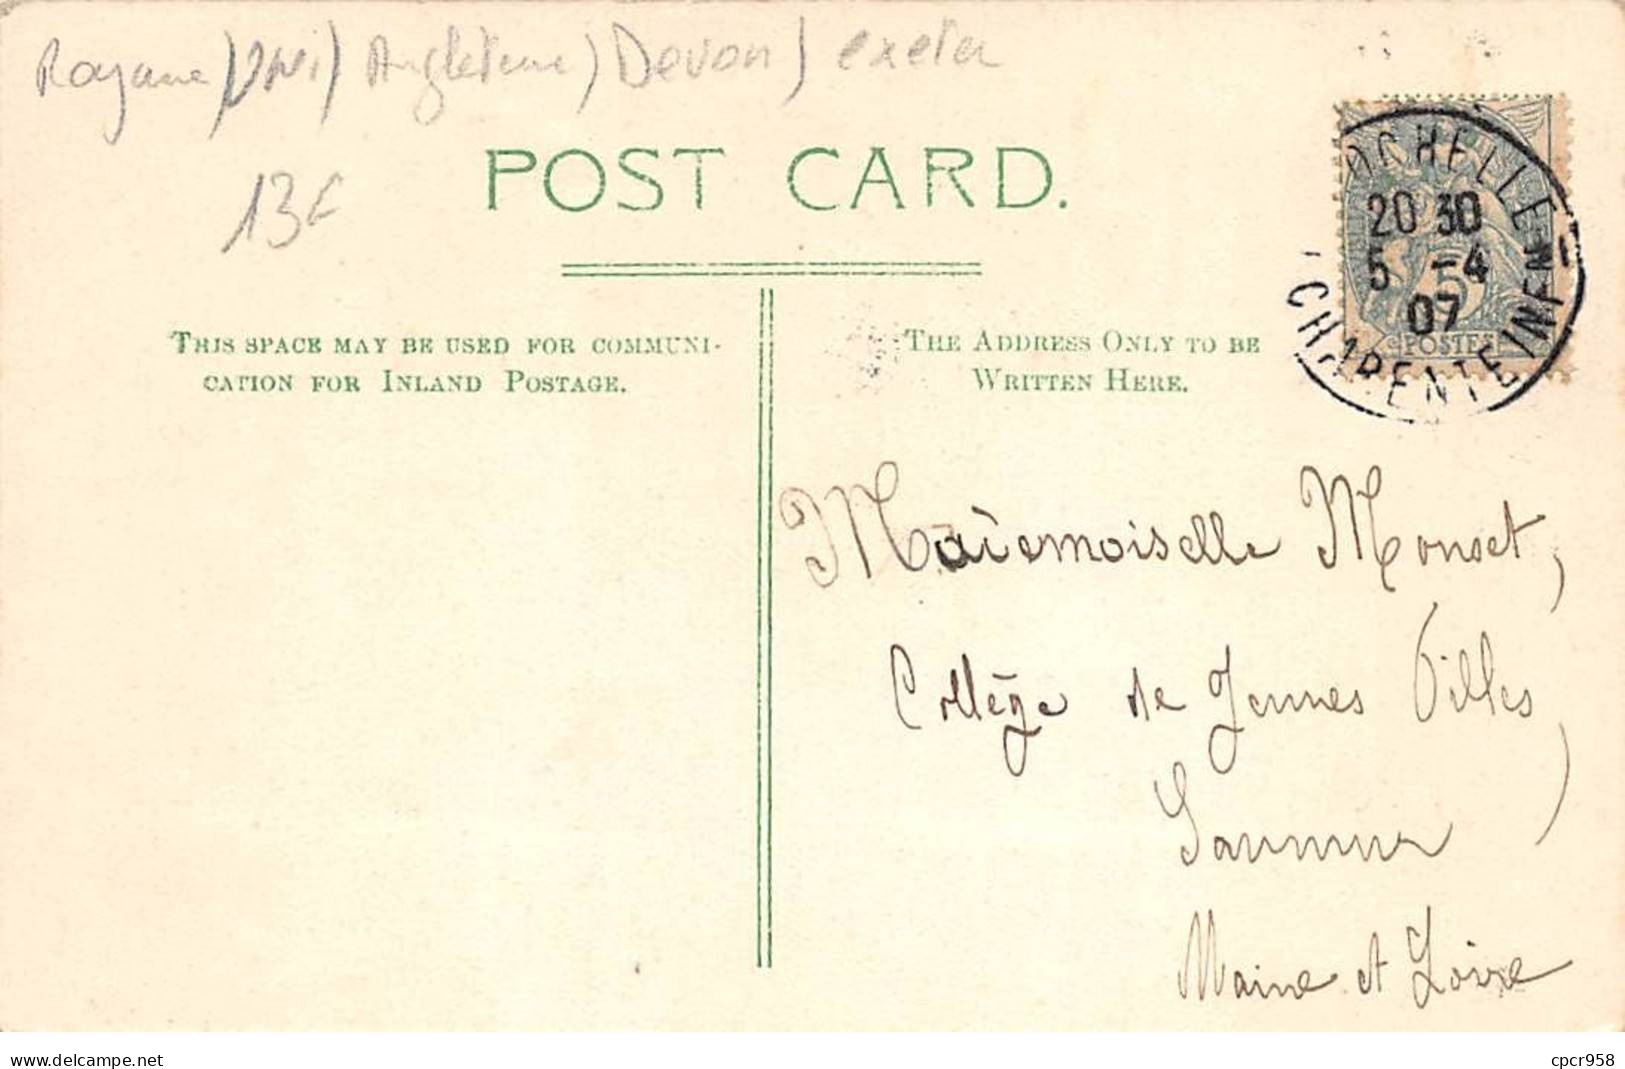 Royaume) Uni) Angleterre) Devon) exeter
13€
POST CARD.
THIS SPACE MAY BE USED FOR COMMUNI-
CATION FOR INLAND POSTAGE.
THE ADDRESS ONLY TO BE
WRITTEN HERE.
OCHELLE
20 30
5 -4
07
CHARENTE INFRE
5
POSTES
Mademoiselle Monset,
Collège de Jeunes Filles,
Saumur
Maine et Loire
www.delcampe.net
cpcr958